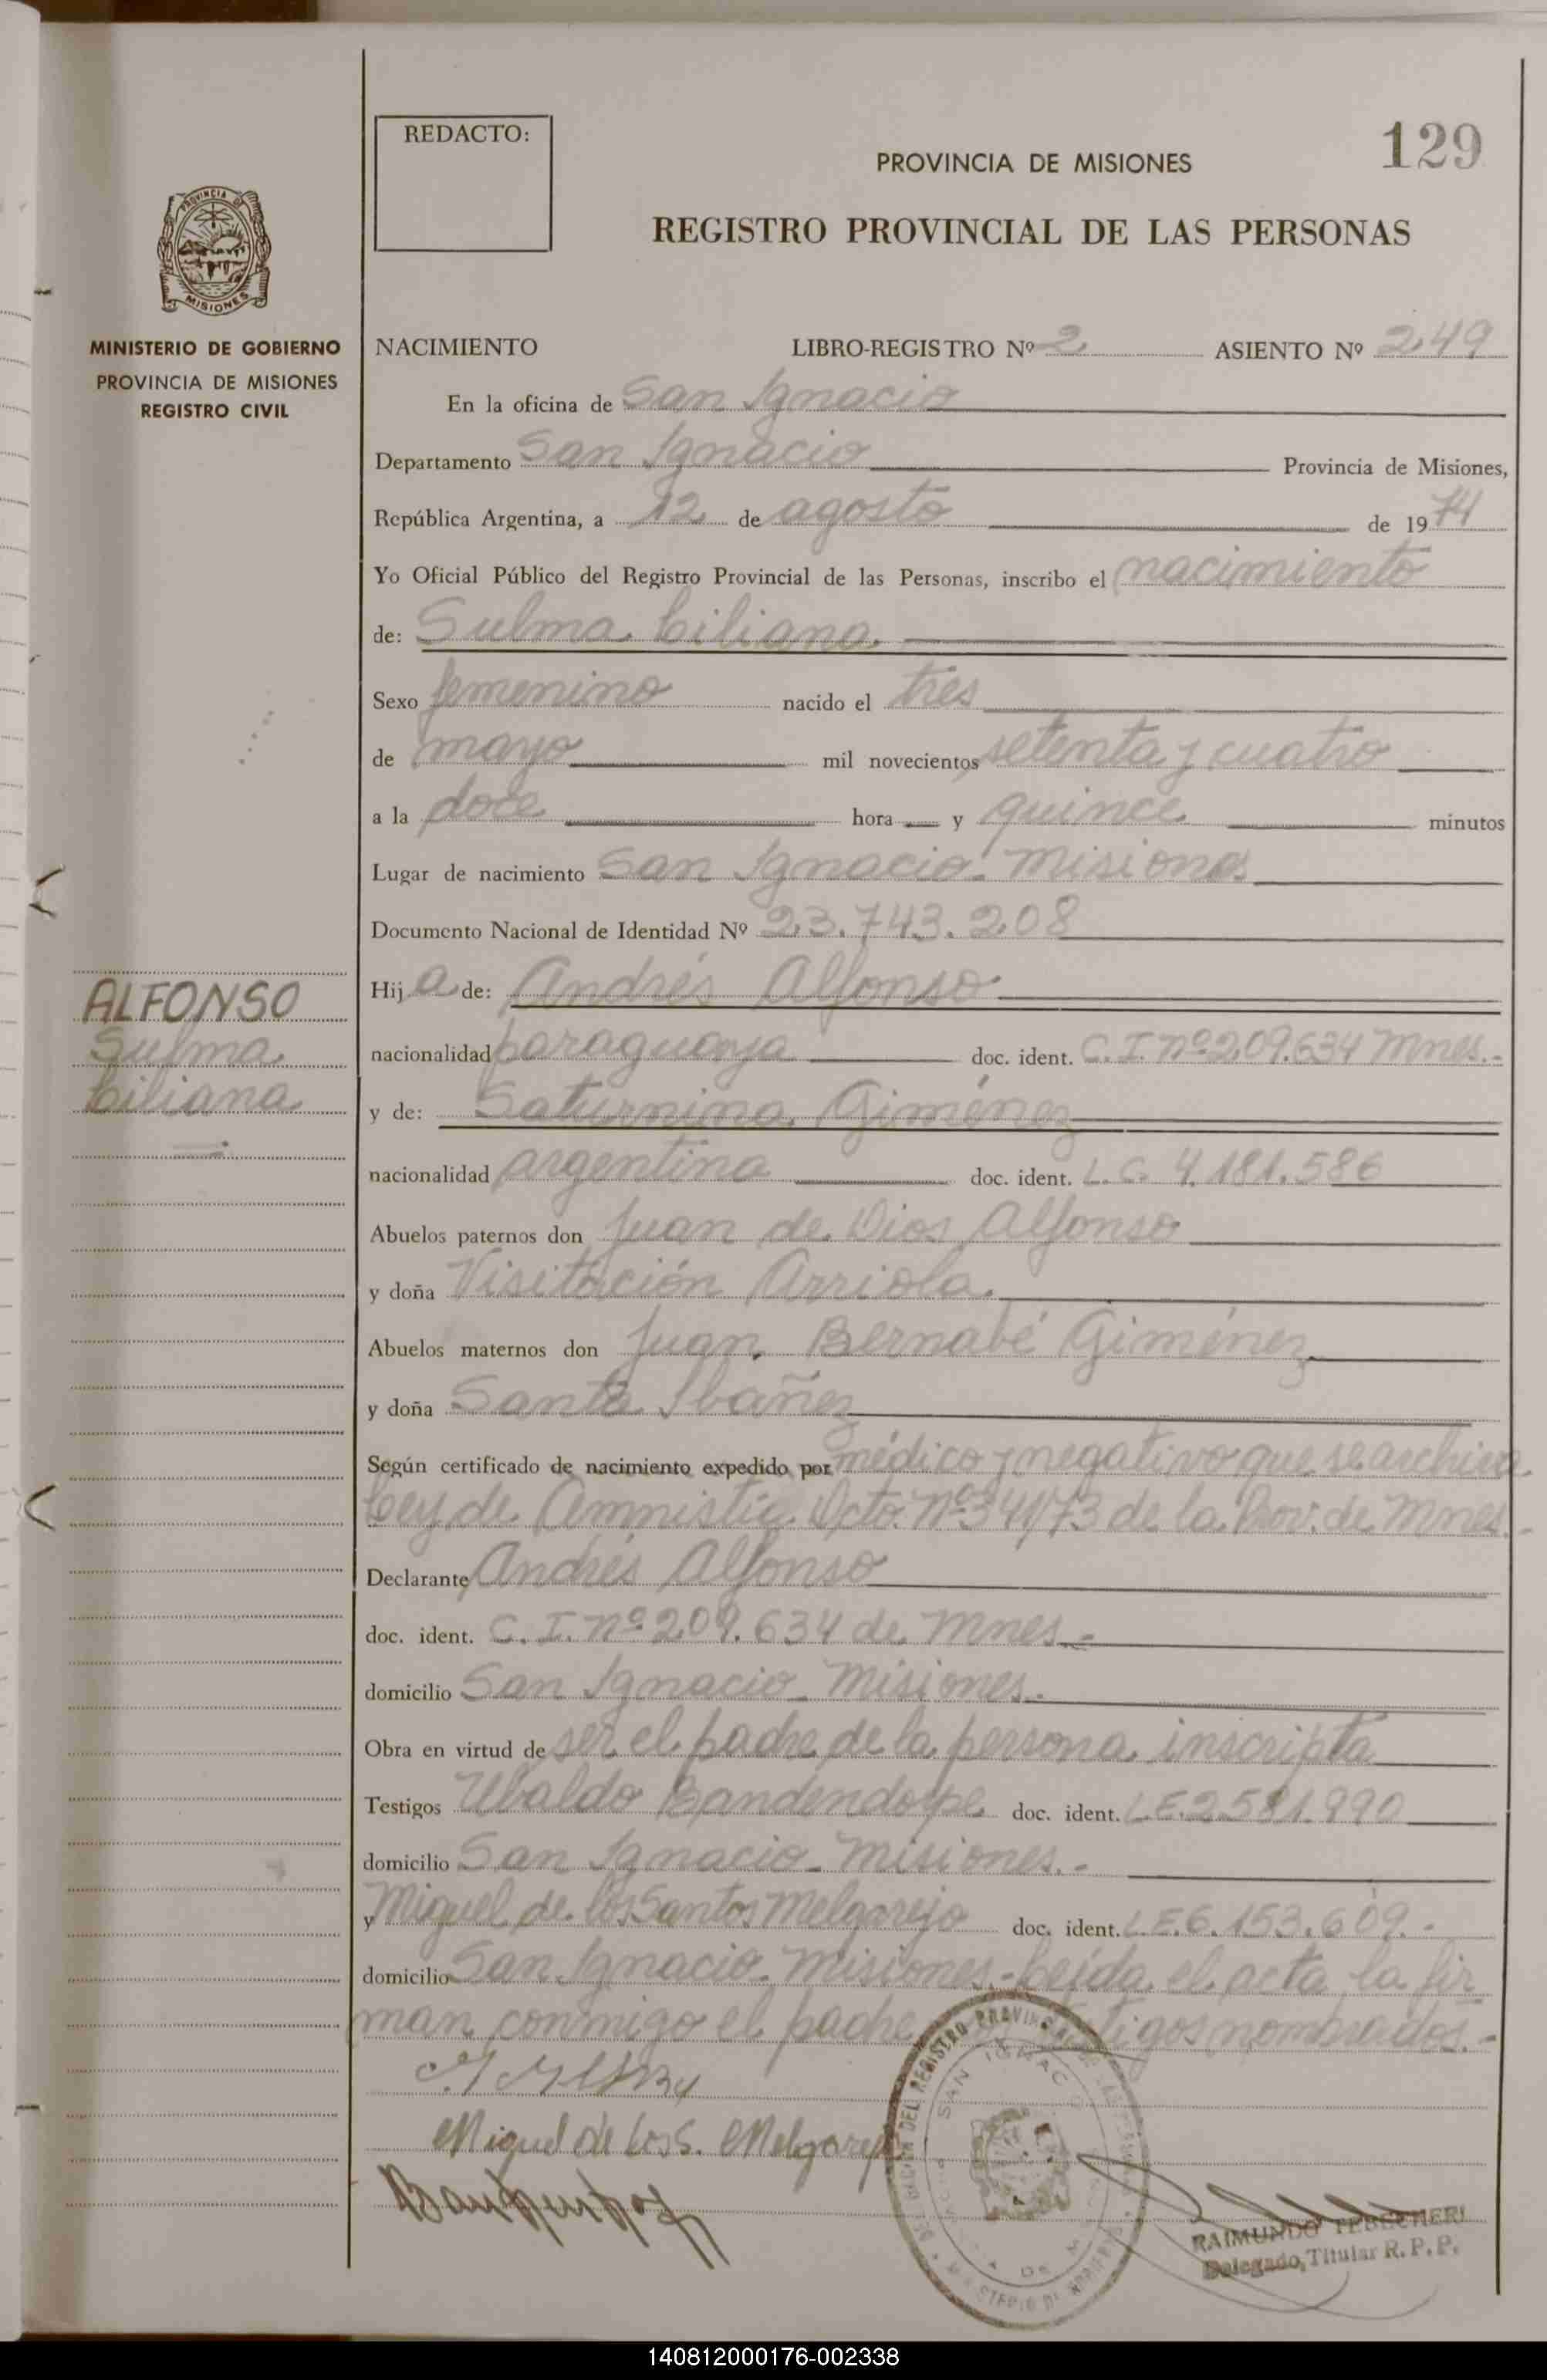 129
REDACTO:
PROVINCIA DE MISIONES
REGISTRO PROVINCIAL DE LAS PERSONAS
PROVINCIA
MISIONES
MINISTERIO DE GOBIERNO
PROVINCIA DE MISIONES
REGISTRO CIVIL
NACIMIENTO LIBRO-REGISTRO Nº 2 ASIENTO Nº 249
En la oficina de San Ignacio
Departamento San Ignacio Provincia de Misiones,
República Argentina, a 12 de agosto de 1974
Yo Oficial Público del Registro Provincial de las Personas, inscribo el nacimiento
de: Sulma Liliana
Sexo femenino nacido el tres
de mayo mil novecientos setenta y cuatro
a la doce hora y quince minutos
Lugar de nacimiento San Ignacio. Misiones
Documento Nacional de Identidad Nº 23.743.208
Hija de: Andrés Alfonso
ALFONSO
Sulma
Liliana
nacionalidad paraguaya doc. ident. C. I. nº 209.634 Mnes.-
y de: Saturnina Giménez
nacionalidad argentina doc. ident. L. C. 4.181.586
Abuelos paternos don Juan de Dios Alfonso
y doña Visitación Arriola
Abuelos maternos don Juan Bernabé Giménez
y doña Santa Ibáñez
Según certificado de nacimiento expedido por médico y negativo que se archiva
Ley de Amnistía Dcto. Nº 341/73 de la Prov. de Mnes.-
Declarante Andrés Alfonso
doc. ident. C. I. nº 209.634 de Mnes.-
domicilio San Ignacio - Misiones.
Obra en virtud de ser el padre de la persona inscripta
Testigos Ubaldo Bandendorpe doc. ident. L.E. 2.581.990
domicilio San Ignacio - Misiones.-
y Miguel de los Santos Melgarejo doc. ident. L.E. 6.153.609.-
domicilio San Ignacio - Misiones.- Leída el acta la fir
man conmigo el padre testigos nombrados.-
Miguel de los S. Melgarejo
DEL REGISTRO PROVINCIAL
SAN IGNACIO
RAIMUNDO TEBECHERI
Delegado Titular R. P. P.
140812000176-002338